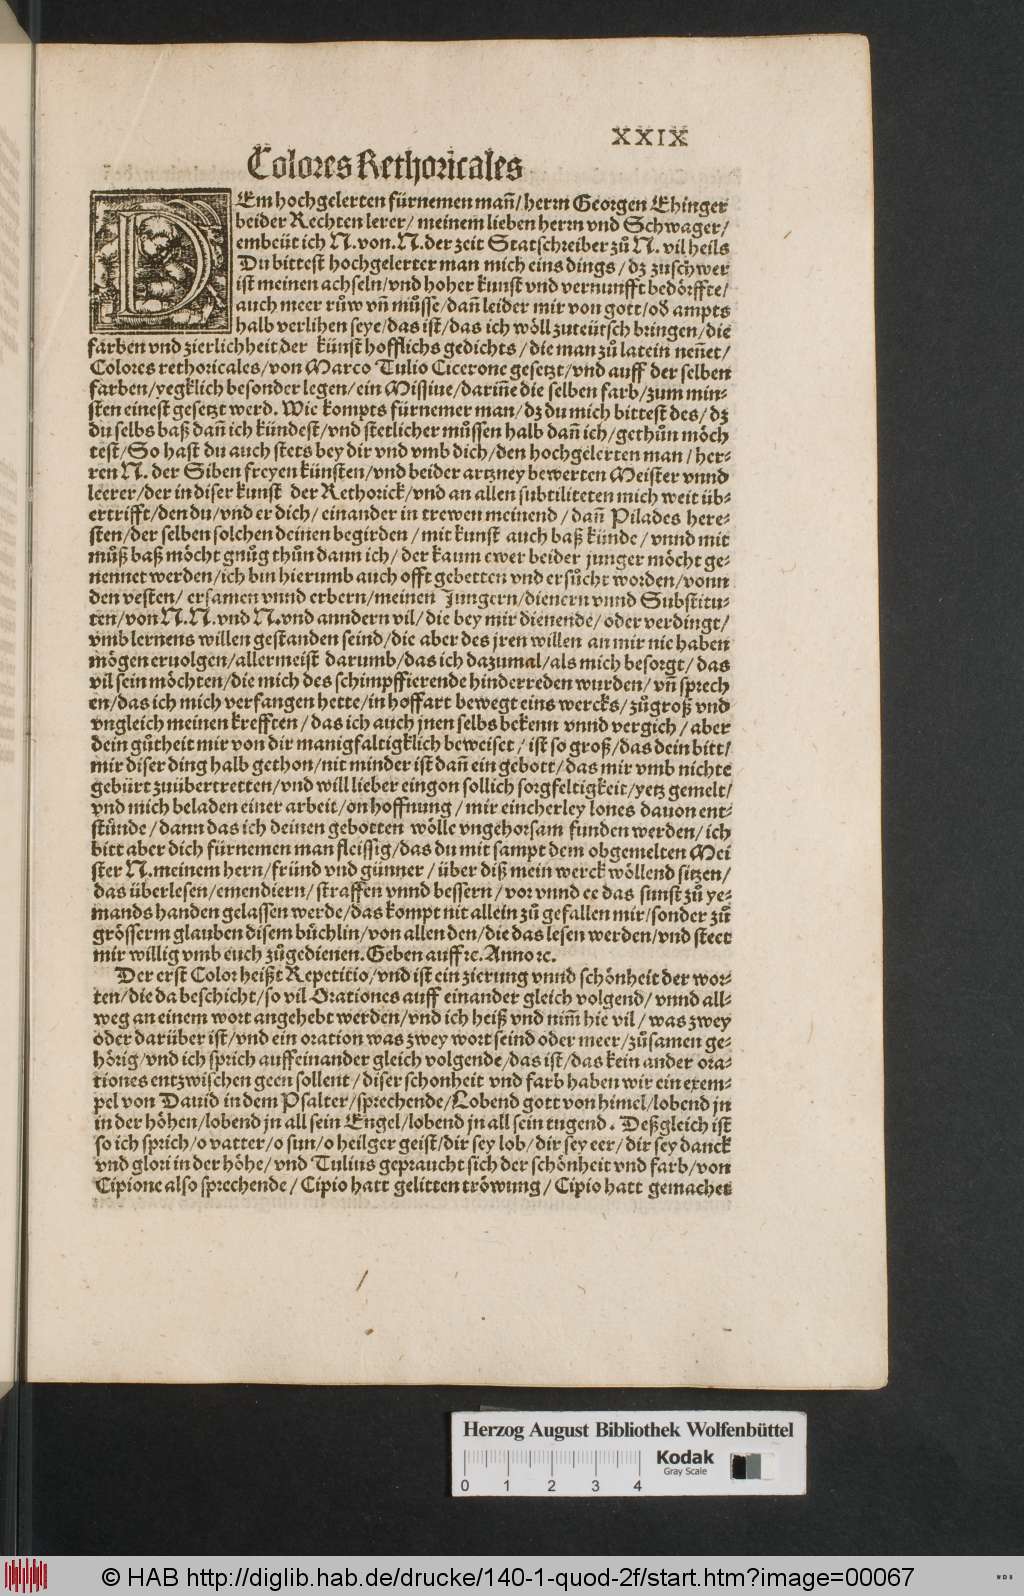 XXIX
Colores Rethoricales
DEm hochgelerten fürnemen mañ/ herrn Georgen Ehinger
beider Rechten lerer/ meinem lieben herrn vnd Schwager/
embeüt ich N. von. N. der zeit Statschreiber zů N. vil heils
Du bittest hochgelerter man mich eins dings / dz zuschwer
ist meinen achseln/vnd hoher kunst vnd vernunfft bedörffte/
auch meer růw vñ můsse/dañ leider mir von gott/od ampts
halb verlihen seye/das ist/das ich wöll zuteütsch bringen/die
farben vnd zierlichheit der künst hofflichs gedichts / die man zů latein neñet/
Colores rethoricales/von Marco Tulio Cicerone gesetzt/vnd auff der selben
farben/yegklich besonder legen/ein Missiue/dariñe die selben farb/zum min-
sten einest gesetzt werd. Wie kompts fürnemer man/dz du mich bittest des/dz
du selbs baß dañ ich kündest/vnd stetlicher můssen halb dañ ich/gethůn möch
test/So hast du auch stets bey dir vnd vmb dich/den hochgelerten man / her-
ren N. der Siben freyen künsten/vnd beider artzney bewerten Meister vnnd
leerer/der in diser kunst der Rethorick/vnd an allen subtiliteten mich weit üb-
ertrifft/den du/vnd er dich/ einander in trewen meinend / dañ Pilades here-
sten/der selben solchen deinen begirden / mit kunst auch baß künde / vnnd mit
můß baß möcht gnůg thůn dann ich / der kaum ewer beider junger möcht ge-
nennet werden/ich bin hierumb auch offt gebetten vnd ersůcht worden/vonn
den vesten/ ersamen vnnd erbern/meinen Jungern/dienern vnnd Substitu-
ten/von N. N. vnd N. vnd anndern vil/ die bey mir dienende/ oder verdingt/
vmb lernens willen gestanden seind/die aber des jren willen an mir nie haben
mögen eruolgen/allermeist darumb/das ich dazumal/als mich besorgt/ das
vil sein möchten/die mich des schimpffierende hinderreden wurden/ vñ sprech
en/das ich mich verfangen hette/in hoffart bewegt eins wercks/zůgroß vnd
vngleich meinen krefften / das ich auch jnen selbs bekenn vnnd vergich / aber
dein gůtheit mir von dir manigfaltigklich beweiset / ist so groß/das dein bitt/
mir diser ding halb gethon/nit minder ist dañ ein gebott/das mir vmb nichte
gebürt zuübertretten/vnd will lieber eingon sollich sorgfeltigkeit/yetz gemelt/
vnd mich beladen einer arbeit/on hoffnung / mir eincherley lones dauon ent-
stünde / dann das ich deinen gebotten wölle vngehorsam funden werden/ ich
bitt aber dich fürnemen man fleissig/das du mit sampt dem obgemelten Mei
ster N. meinem hern/fründ vnd günner / über diß mein werck wöllend sitzen/
das überlesen/emendiern/ straffen vnnd bessern / vor vnnd ee das sunst zů ye-
mands handen gelassen werde/das kompt nit allein zů gefallen mir/sonder zů
grösserm glauben disem bůchlin/von allen den/die das lesen werden/vnd steet
mir willig vmb euch zůgedienen. Geben auff ꝛc. Anno ꝛc.
Der erst Color heißt Repetitio/vnd ist ein zierung vnnd schönheit der wor-
ten/die da beschicht/so vil Orationes auff einander gleich volgend/ vnnd all-
weg an einem wort angehebt werden/vnd ich heiß vnd nim̃ hie vil / was zwey
oder darüber ist/vnd ein oration was zwey wort seind oder meer/zůsamen ge-
hörig/vnd ich sprich auffeinander gleich volgende/das ist/das kein ander ora-
tiones entzwischen geen sollent / diser schonheit vnd farb haben wir ein exem-
pel von Dauid in dem Psalter/sprechende/Lobend gott von himel/lobend jn
in der höhen/lobend jn all sein Engel/lobend jn all sein tugend. Deßgleich ist
so ich sprich/o vatter/o sun/o heilger geist/dir sey lob/dir sey eer/dir sey danck
vnd glori in der höhe/vnd Tulius gepraucht sich der schönheit vnd farb/von
Cipione also sprechende / Cipio hatt gelitten tröwung/ Cipio hatt gemachet
Herzog August Bibliothek Wolfenbüttel
Kodak
Gray Scale
0 1 2 3 4
© HAB http://diglib.hab.de/drucke/140-1-quod-2f/start.htm?image=00067